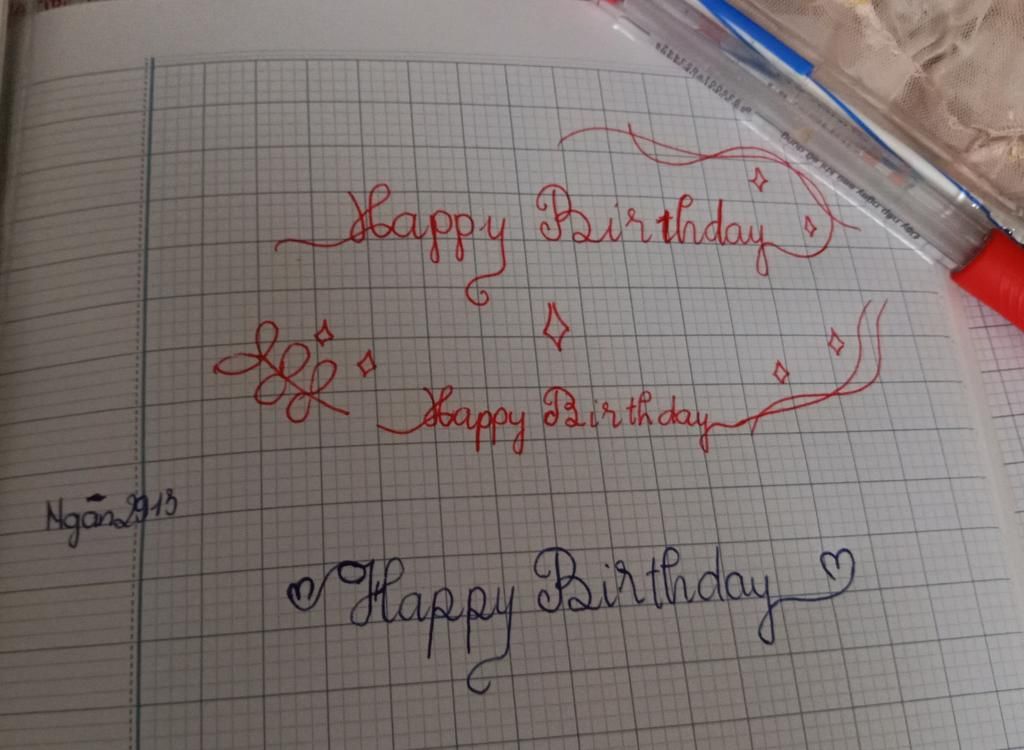 Happy Birthday
Happy Birthday
Ngân2913
Happy Birthday